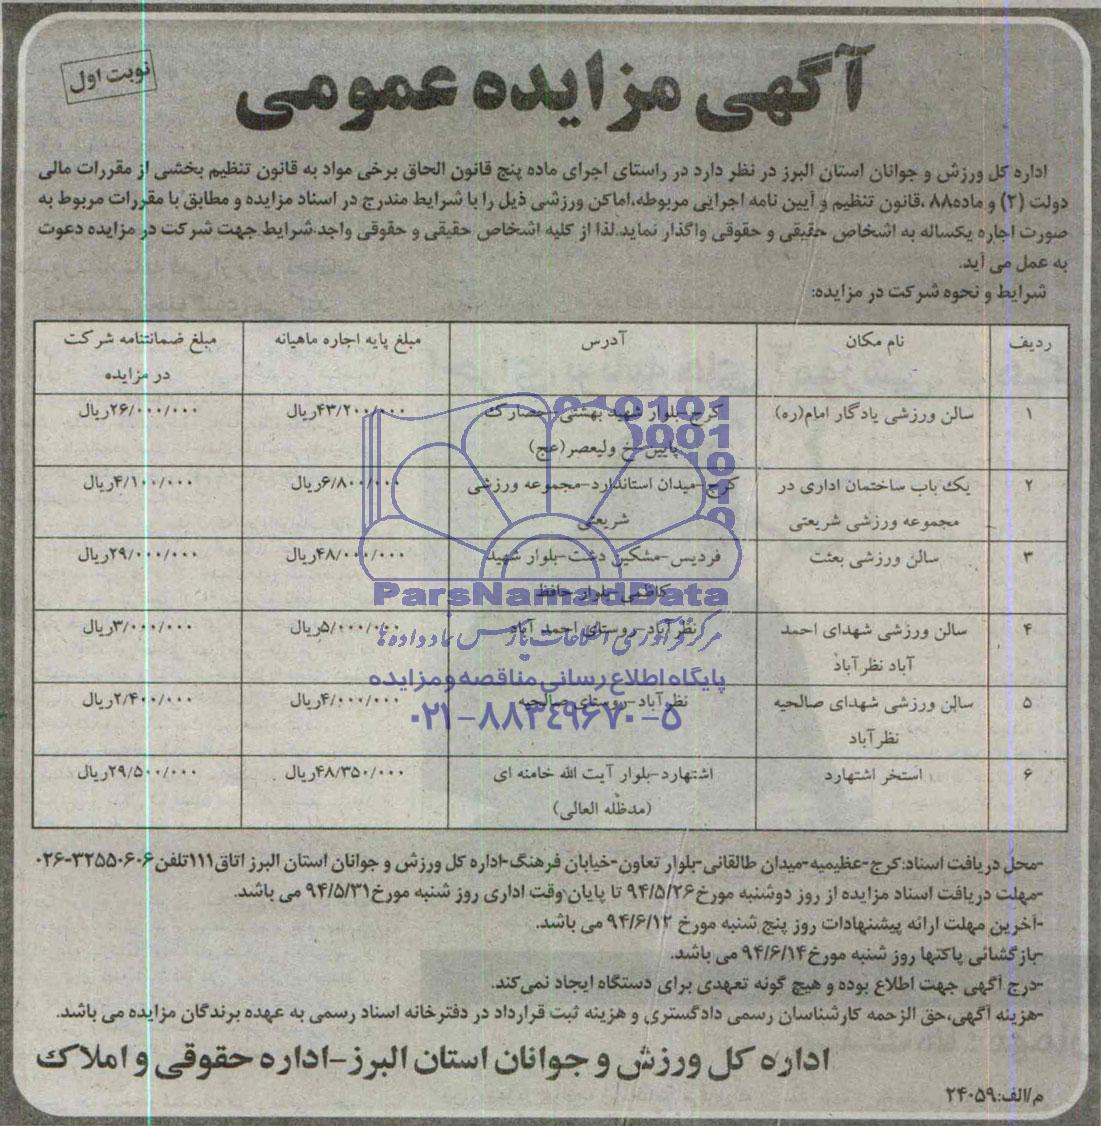 آگهی مزایده عمومی
نوبت اول
اداره کل ورزش و جوانان استان البرز در نظر دارد در راستای اجرای ماده پنج قانون الحاق برخی مواد به قانون تنظیم بخشی از مقررات مالی
دولت (۲) و ماده۸۸ ،قانون تنظیم و آیین نامه اجرایی مربوطه،اماکن ورزشی ذیل را با شرایط مندرج در اسناد مزایده و مطابق با مقررات مربوط به
صورت اجاره یکساله به اشخاص حقیقی و حقوقی واگذار نماید.لذا از کلیه اشخاص حقیقی و حقوقی واجد شرایط جهت شرکت در مزایده دعوت
به عمل می آید.
شرایط و نحوه شرکت در مزایده:
ردیف نام مکان آدرس مبلغ پایه اجاره ماهیانه مبلغ ضمانتنامه شرکت
در مزایده
۱ سالن ورزشی یادگار امام(ره) کرج-بلوار شهید بهشتی-حصارک ۴۳/۲۰۰/۰۰۰ریال ۲۶/۰۰۰/۰۰۰ریال
پایین-خ ولیعصر(عج)
۲ یک باب ساختمان اداری در کرج-میدان استاندارد-مجموعه ورزشی ۶/۸۰۰/۰۰۰ریال ۴/۱۰۰/۰۰۰ریال
مجموعه ورزشی شریعتی شریعتی
۳ سالن ورزشی بعثت فردیس-مشکین دشت-بلوار شهید ۴۸/۰۰۰/۰۰۰ریال ۲۹/۰۰۰/۰۰۰ریال
کاظمی-بلوار حافظ
۴ سالن ورزشی شهدای احمد نظرآباد-روستای احمد آباد ۵/۰۰۰/۰۰۰ریال ۳/۰۰۰/۰۰۰ریال
آباد نظرآباد
۵ سالن ورزشی شهدای صالحیه نظرآباد-روستای صالحیه ۴/۰۰۰/۰۰۰ریال ۲/۴۰۰/۰۰۰ریال
نظرآباد
۶ استخر اشتهارد اشتهارد-بلوار آیت الله خامنه ای ۴۸/۳۵۰/۰۰۰ریال ۲۹/۵۰۰/۰۰۰ریال
(مدظله العالی)
010101
0001
101
010
ParsNamadData
مرکز فرآوری اطلاعات پارس نماد داده ها
پایگاه اطلاع رسانی مناقصه و مزایده
۰۲۱-۸۸۳۴۹۶۷۰-۵
-محل دریافت اسناد:کرج-عظیمیه-میدان طالقانی-بلوار تعاون-خیابان فرهنگ-اداره کل ورزش و جوانان استان البرز اتاق۱۱۱تلفن۳۲۵۵۰۶۰۶-۰۲۶
-مهلت دریافت اسناد مزایده از روز دوشنبه مورخ۹۴/۵/۲۶ تا پایان وقت اداری روز شنبه مورخ۹۴/۵/۳۱ می باشد.
-آخرین مهلت ارائه پیشنهادات روز پنج شنبه مورخ ۹۴/۶/۱۲ می باشد.
-بازگشائی پاکتها روز شنبه مورخ۹۴/۶/۱۴ می باشد.
-درج آگهی جهت اطلاع بوده و هیچ گونه تعهدی برای دستگاه ایجاد نمی‌کند.
-هزینه آگهی،حق الزحمه کارشناسان رسمی دادگستری و هزینه ثبت قرارداد در دفترخانه اسناد رسمی به عهده برندگان مزایده می باشد.
اداره کل ورزش و جوانان استان البرز-اداره حقوقی و املاک
م/الف:۲۴۰۵۹